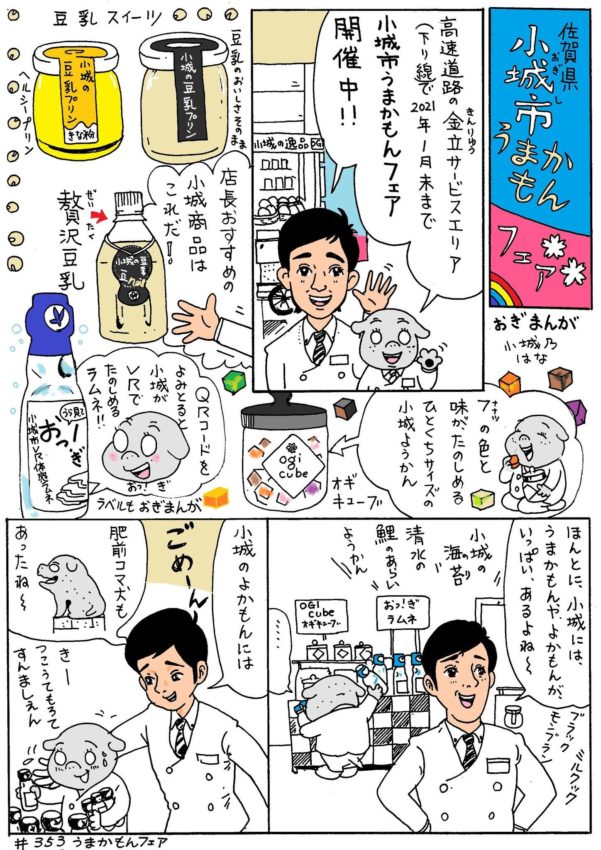 佐賀県
小城市
おぎし
うまかもん
フェア
おぎまんが
小城乃
はな
高速道路の金立サービスエリア
きんりゅう
(下り線)で2021年1月末まで
小城市うまかもんフェア
開催中!!
小城の逸品
豆乳スイーツ
豆乳のおいしさそのまま
小城の豆乳プリン
小城の
豆乳プリン
きな粉
ヘルシープリン
店長おすすめの
小城商品は
これだ!
ぜいたく
贅沢豆乳
7つの色と
ナナ
味がたのしめる
ひとくちサイズの
小城ようかん
ogi
cube
オギ
キューブ
QRコードを
よみとると
小城が
VRで
たのしめる
ラムネ!!
おっ!ぎ
小城市VR体感ラムネ
おっ!ぎ
ラベルもおぎまんが
ほんとに、小城には、
うまかもんや、よかもんが、
いっぱい、あるよね〜
小城の
海苔
のり
清水の
鯉のあらい
ようかん
OGI
cube
オギキューブ
おっ!ぎ
ラムネ
ブラック
モンブラン
ミルクック
……
小城のよかもんには
ごめーん
肥前コマ犬も
あったね〜
きー
つこうてもろて
すんましえん
#353 うまかもんフェア